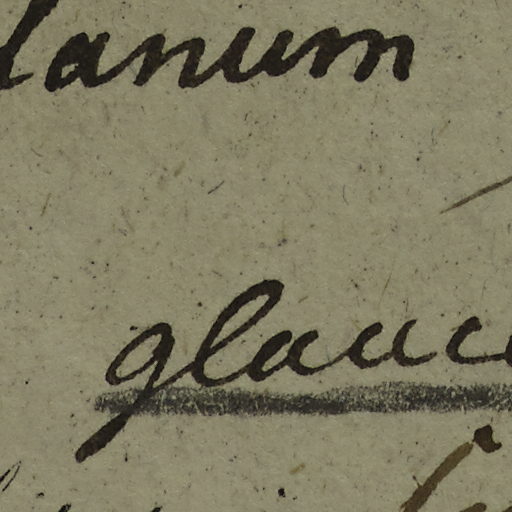 lanum
glauc